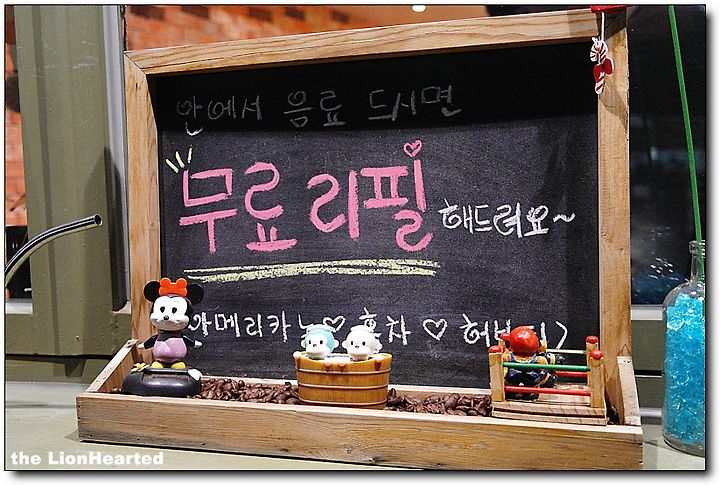 안에서 음료 드시면
무료 리필 해드려요~
아메리카노♡ 홍차 ♡
the LionHearted